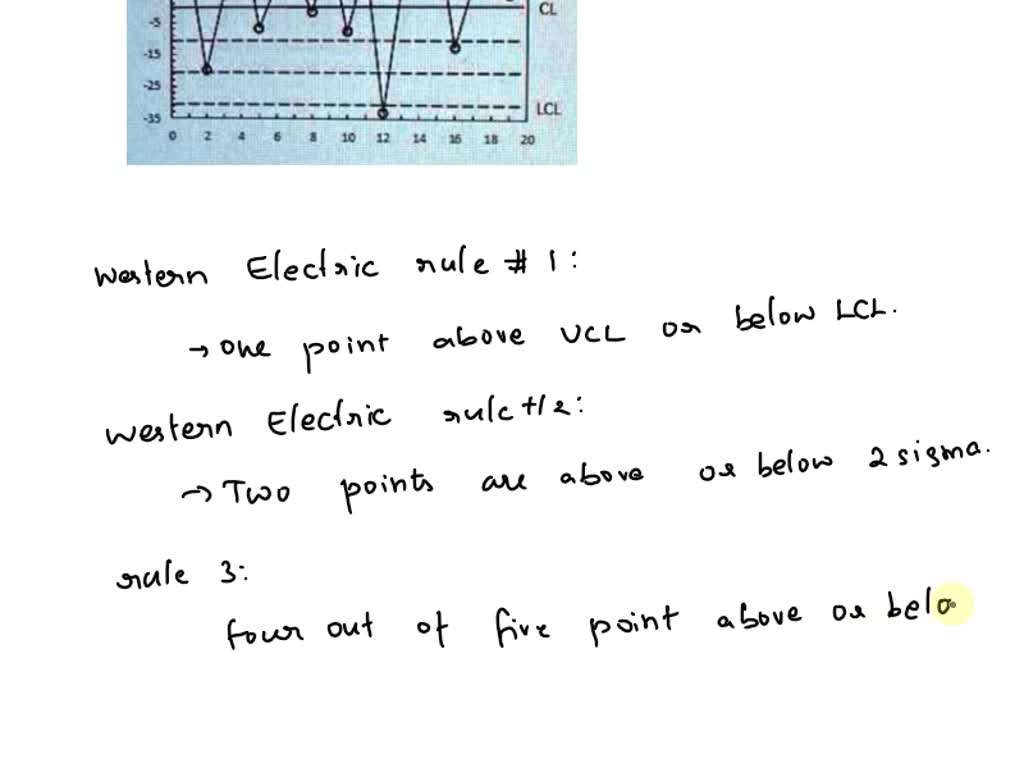 CL
-5
-15
-25
LCL
-35
0 2 4 6 8 10 12 14 16 18 20
Western Electric rule # 1:
→ One point above UCL or below LCL.
Western Electric rule # 2:
→ Two points are above or below 2 sigma.
rule 3:
four out of five point above or belo